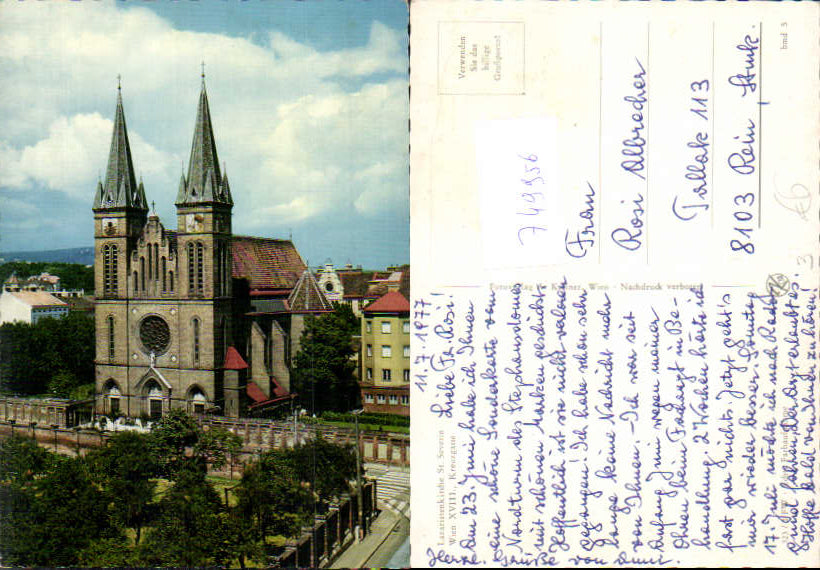 Verwenden
Sie das
bmd 3
749956
Frau
Rosi Albrecher
Tallak 113
8103 Rein, Stmk.
Wien · Nachdruck verboten
Lazaristenkirche St. Severin
Wien XVIII., Kreuzgasse
11.7.1977
Liebe Fr. Rosi!
Am 23. Juni habe ich Ihnen
eine schöne Sonderkarte vom
Nordturm des Stephansdomes
mit schönen Marken geschickt.
Hoffentlich ist sie nicht verloren
gegangen! Ich habe schon sehr
lange keine Nachricht mehr
von Ihnen. – Ich war seit
Anfang Juni wegen meiner
Ohren beim Facharzt in Be-
handlung. 2 Wochen hörte ich
fast gar nichts. Jetzt geht's
mir wieder besser. Sonntag
17. Juli möchte ich nach
falls der Arzt erlaubt es.
Hoffe bald von Euch zu hören!
Herzl. Grüße von